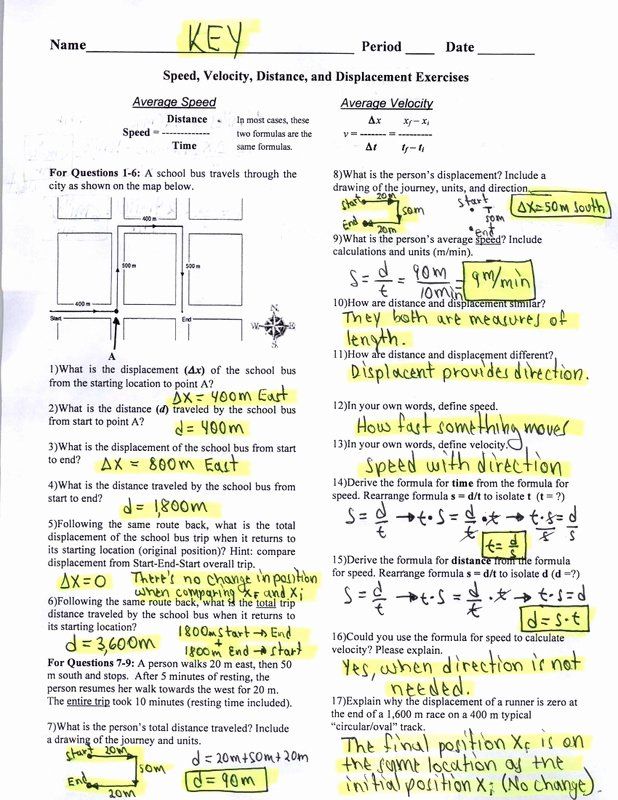 Name KEY Period Date
Speed, Velocity, Distance, and Displacement Exercises
Average Speed
Distance
Speed = -------------
Time
In most cases, these
two formulas are the
same formulas.
Average Velocity
Δx xf – xi
v = ------- = ---------
Δt tf – ti
For Questions 1-6: A school bus travels through the
city as shown on the map below.
400 m
500 m
500 m
400 m
Start
End
A
N
W
E
S
1)What is the displacement (Δx) of the school bus
from the starting location to point A?
ΔX = 400m East
2)What is the distance (d) traveled by the school bus
from start to point A?
d = 400m
3)What is the displacement of the school bus from start
to end? ΔX = 800m East
4)What is the distance traveled by the school bus from
start to end?
d = 1,800m
5)Following the same route back, what is the total
displacement of the school bus trip when it returns to
its starting location (original position)? Hint: compare
displacement from Start-End-Start overall trip.
ΔX=0 There's no change in position
when comparing XF and Xi
6)Following the same route back, what is the total trip
distance traveled by the school bus when it returns to
its starting location?
d = 3,600m
1800m Start → End
+
1800m End → Start
For Questions 7-9: A person walks 20 m east, then 50
m south and stops. After 5 minutes of resting, the
person resumes her walk towards the west for 20 m.
The entire trip took 10 minutes (resting time included).
7)What is the person's total distance traveled? Include
a drawing of the journey and units.
Start 20m
50m
End
20m
d = 20m+50m+20m
d = 90m
8)What is the person's displacement? Include a
drawing of the journey, units, and direction.
Start 20m
50m
End
20m
start
50m
end
ΔX=50m South
9)What is the person's average speed? Include
calculations and units (m/min).
S = d/t = 90m/10min = 9m/min
10)How are distance and displacement similar?
They both are measures of
length.
11)How are distance and displacement different?
Displacent provides direction.
12)In your own words, define speed.
How fast something moves
13)In your own words, define velocity.
Speed with direction
14)Derive the formula for time from the formula for
speed. Rearrange formula s = d/t to isolate t (t = ?)
S = d/t → t·S = d/t · t → t·s/s = d/s
t = d/s
15)Derive the formula for distance from the formula
for speed. Rearrange formula s = d/t to isolate d (d =?)
S = d/t → t·S = d/t · t → t·S = d
d = s·t
16)Could you use the formula for speed to calculate
velocity? Please explain.
Yes, when direction is not
needed.
17)Explain why the displacement of a runner is zero at
the end of a 1,600 m race on a 400 m typical
“circular/oval” track.
The final position XF is on
the same location as the
initial position Xi (No change).